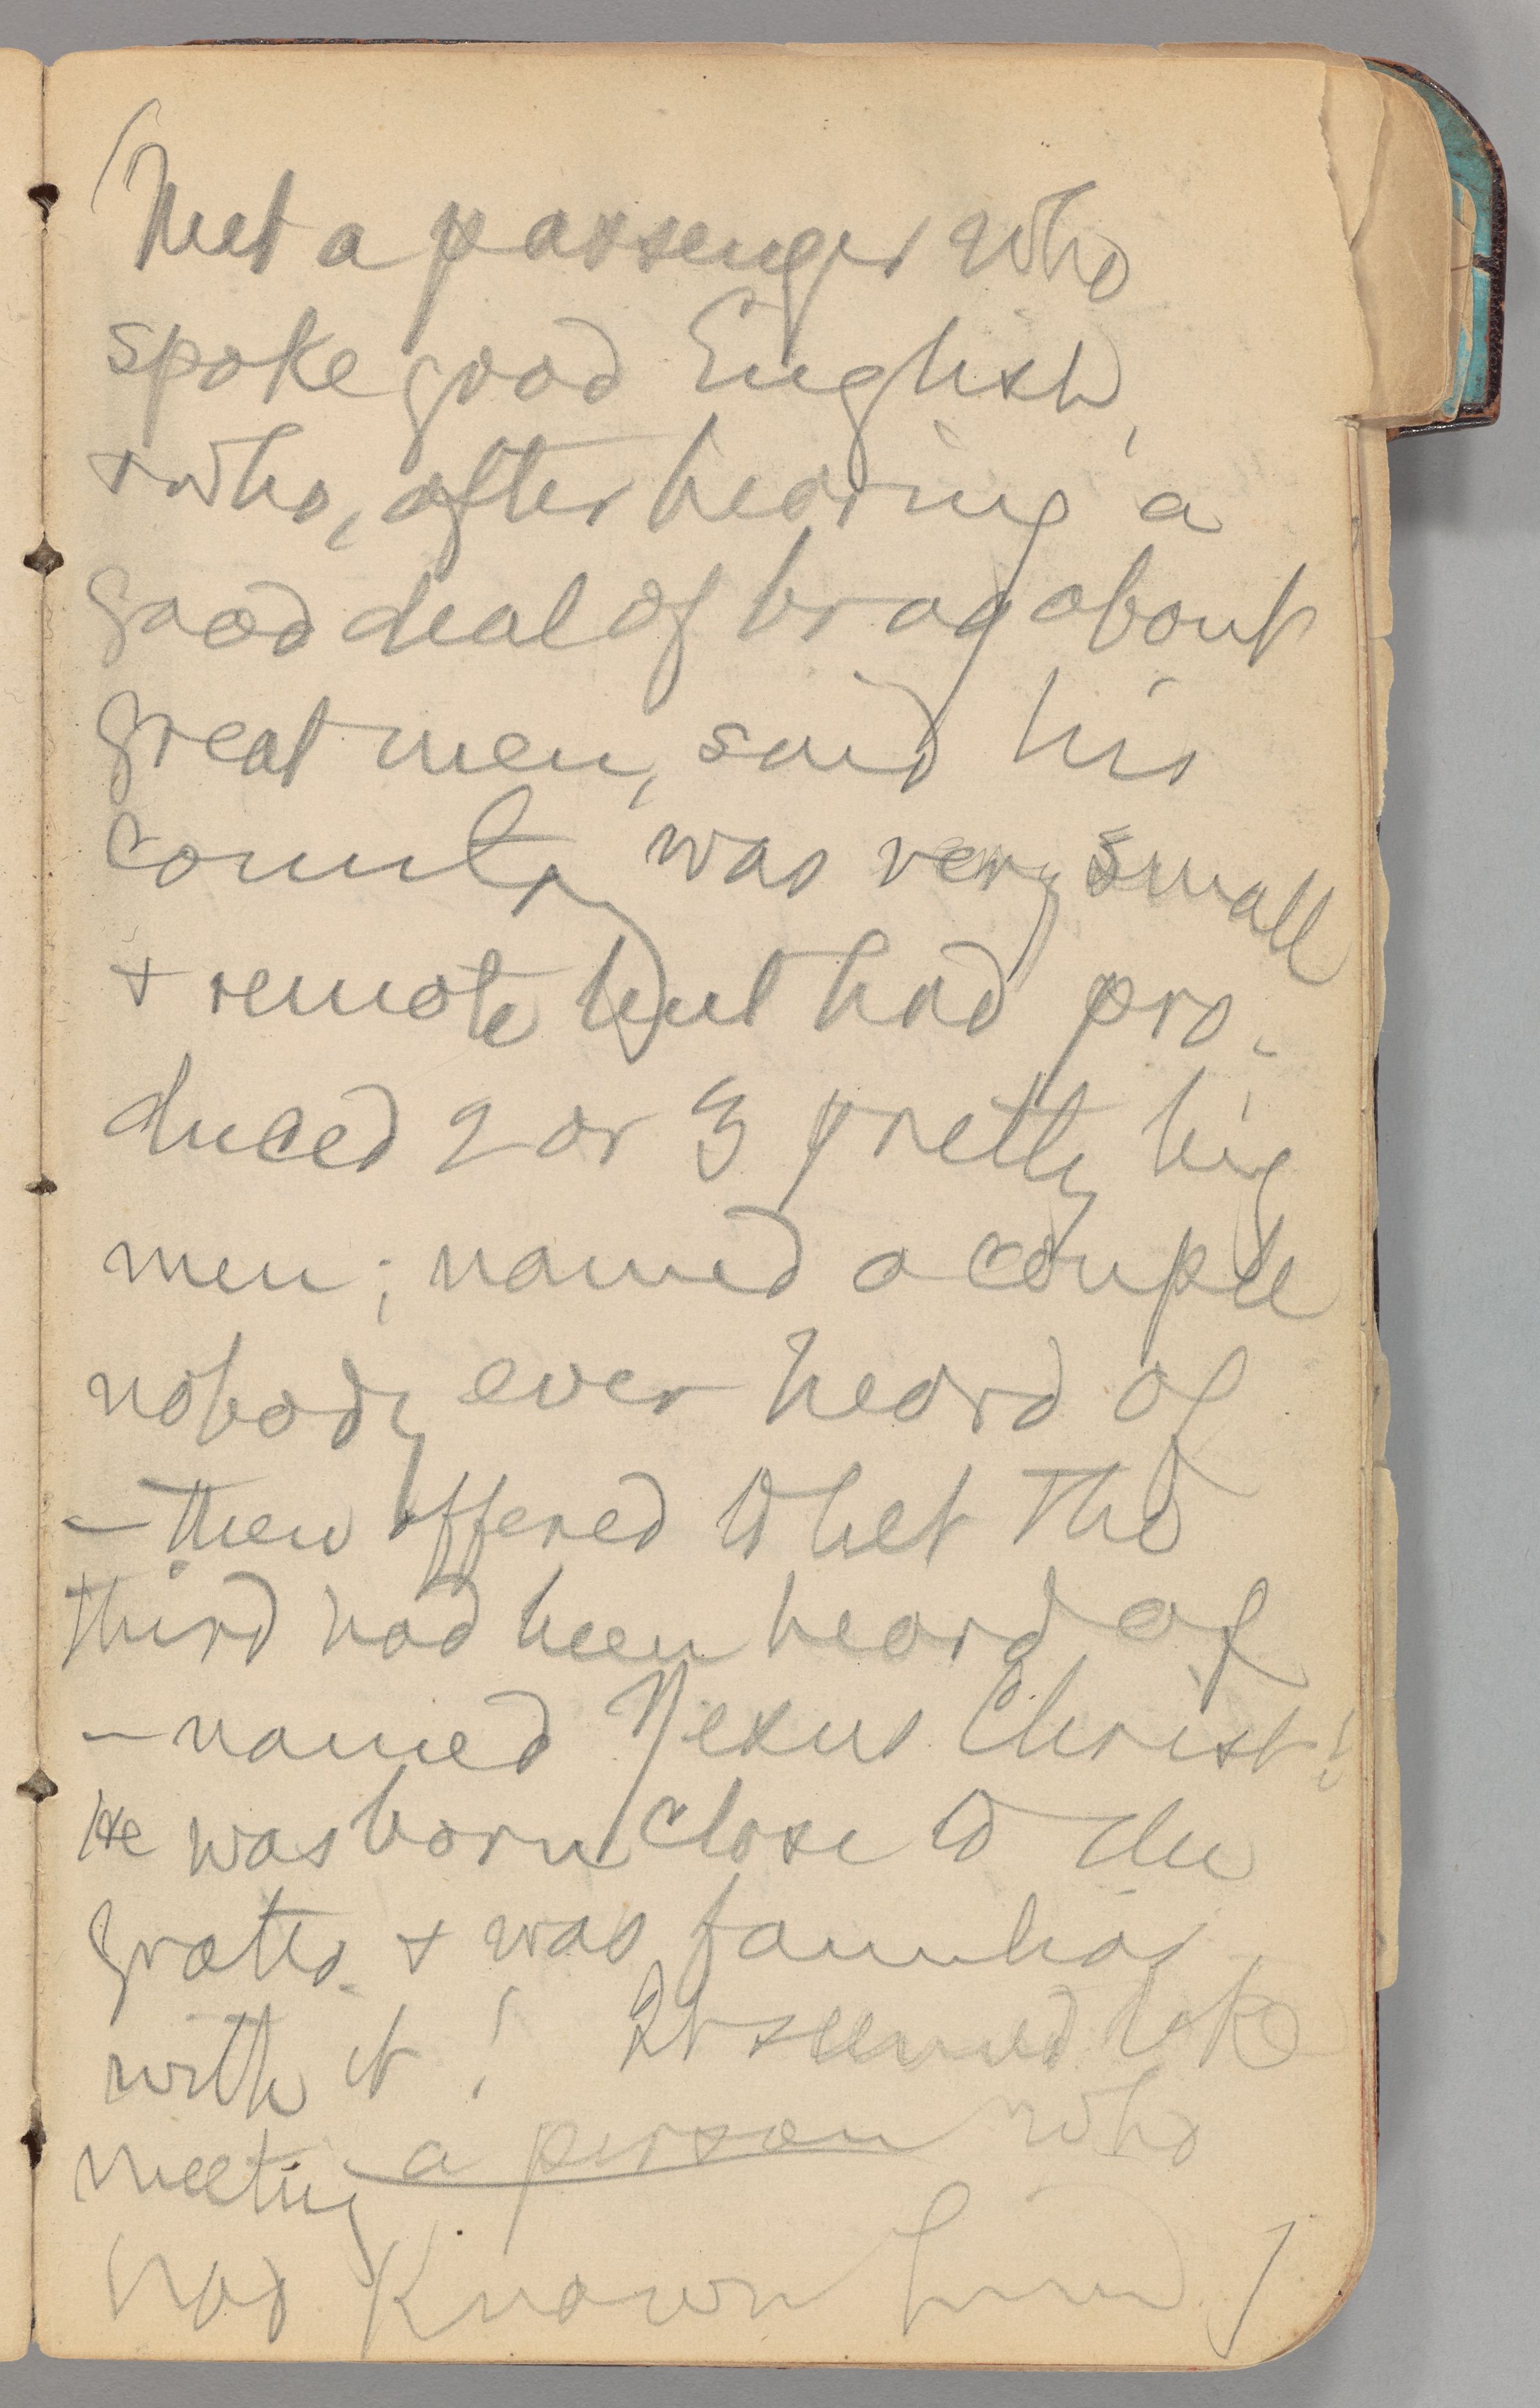 (Met a passenger who
spoke good English,
+ who, after hearing a
good deal of brag about
great men, said his
country was very small
+ remote but had pro-
duced 2 or 3 pretty big
men; named a couple
nobody ever heard of
— then offered to bet the
third had been heard of
— named Jesus Christ!
He was born close to the
grotto + was familiar
with it! It seemed like
meeting a person who
had known him)